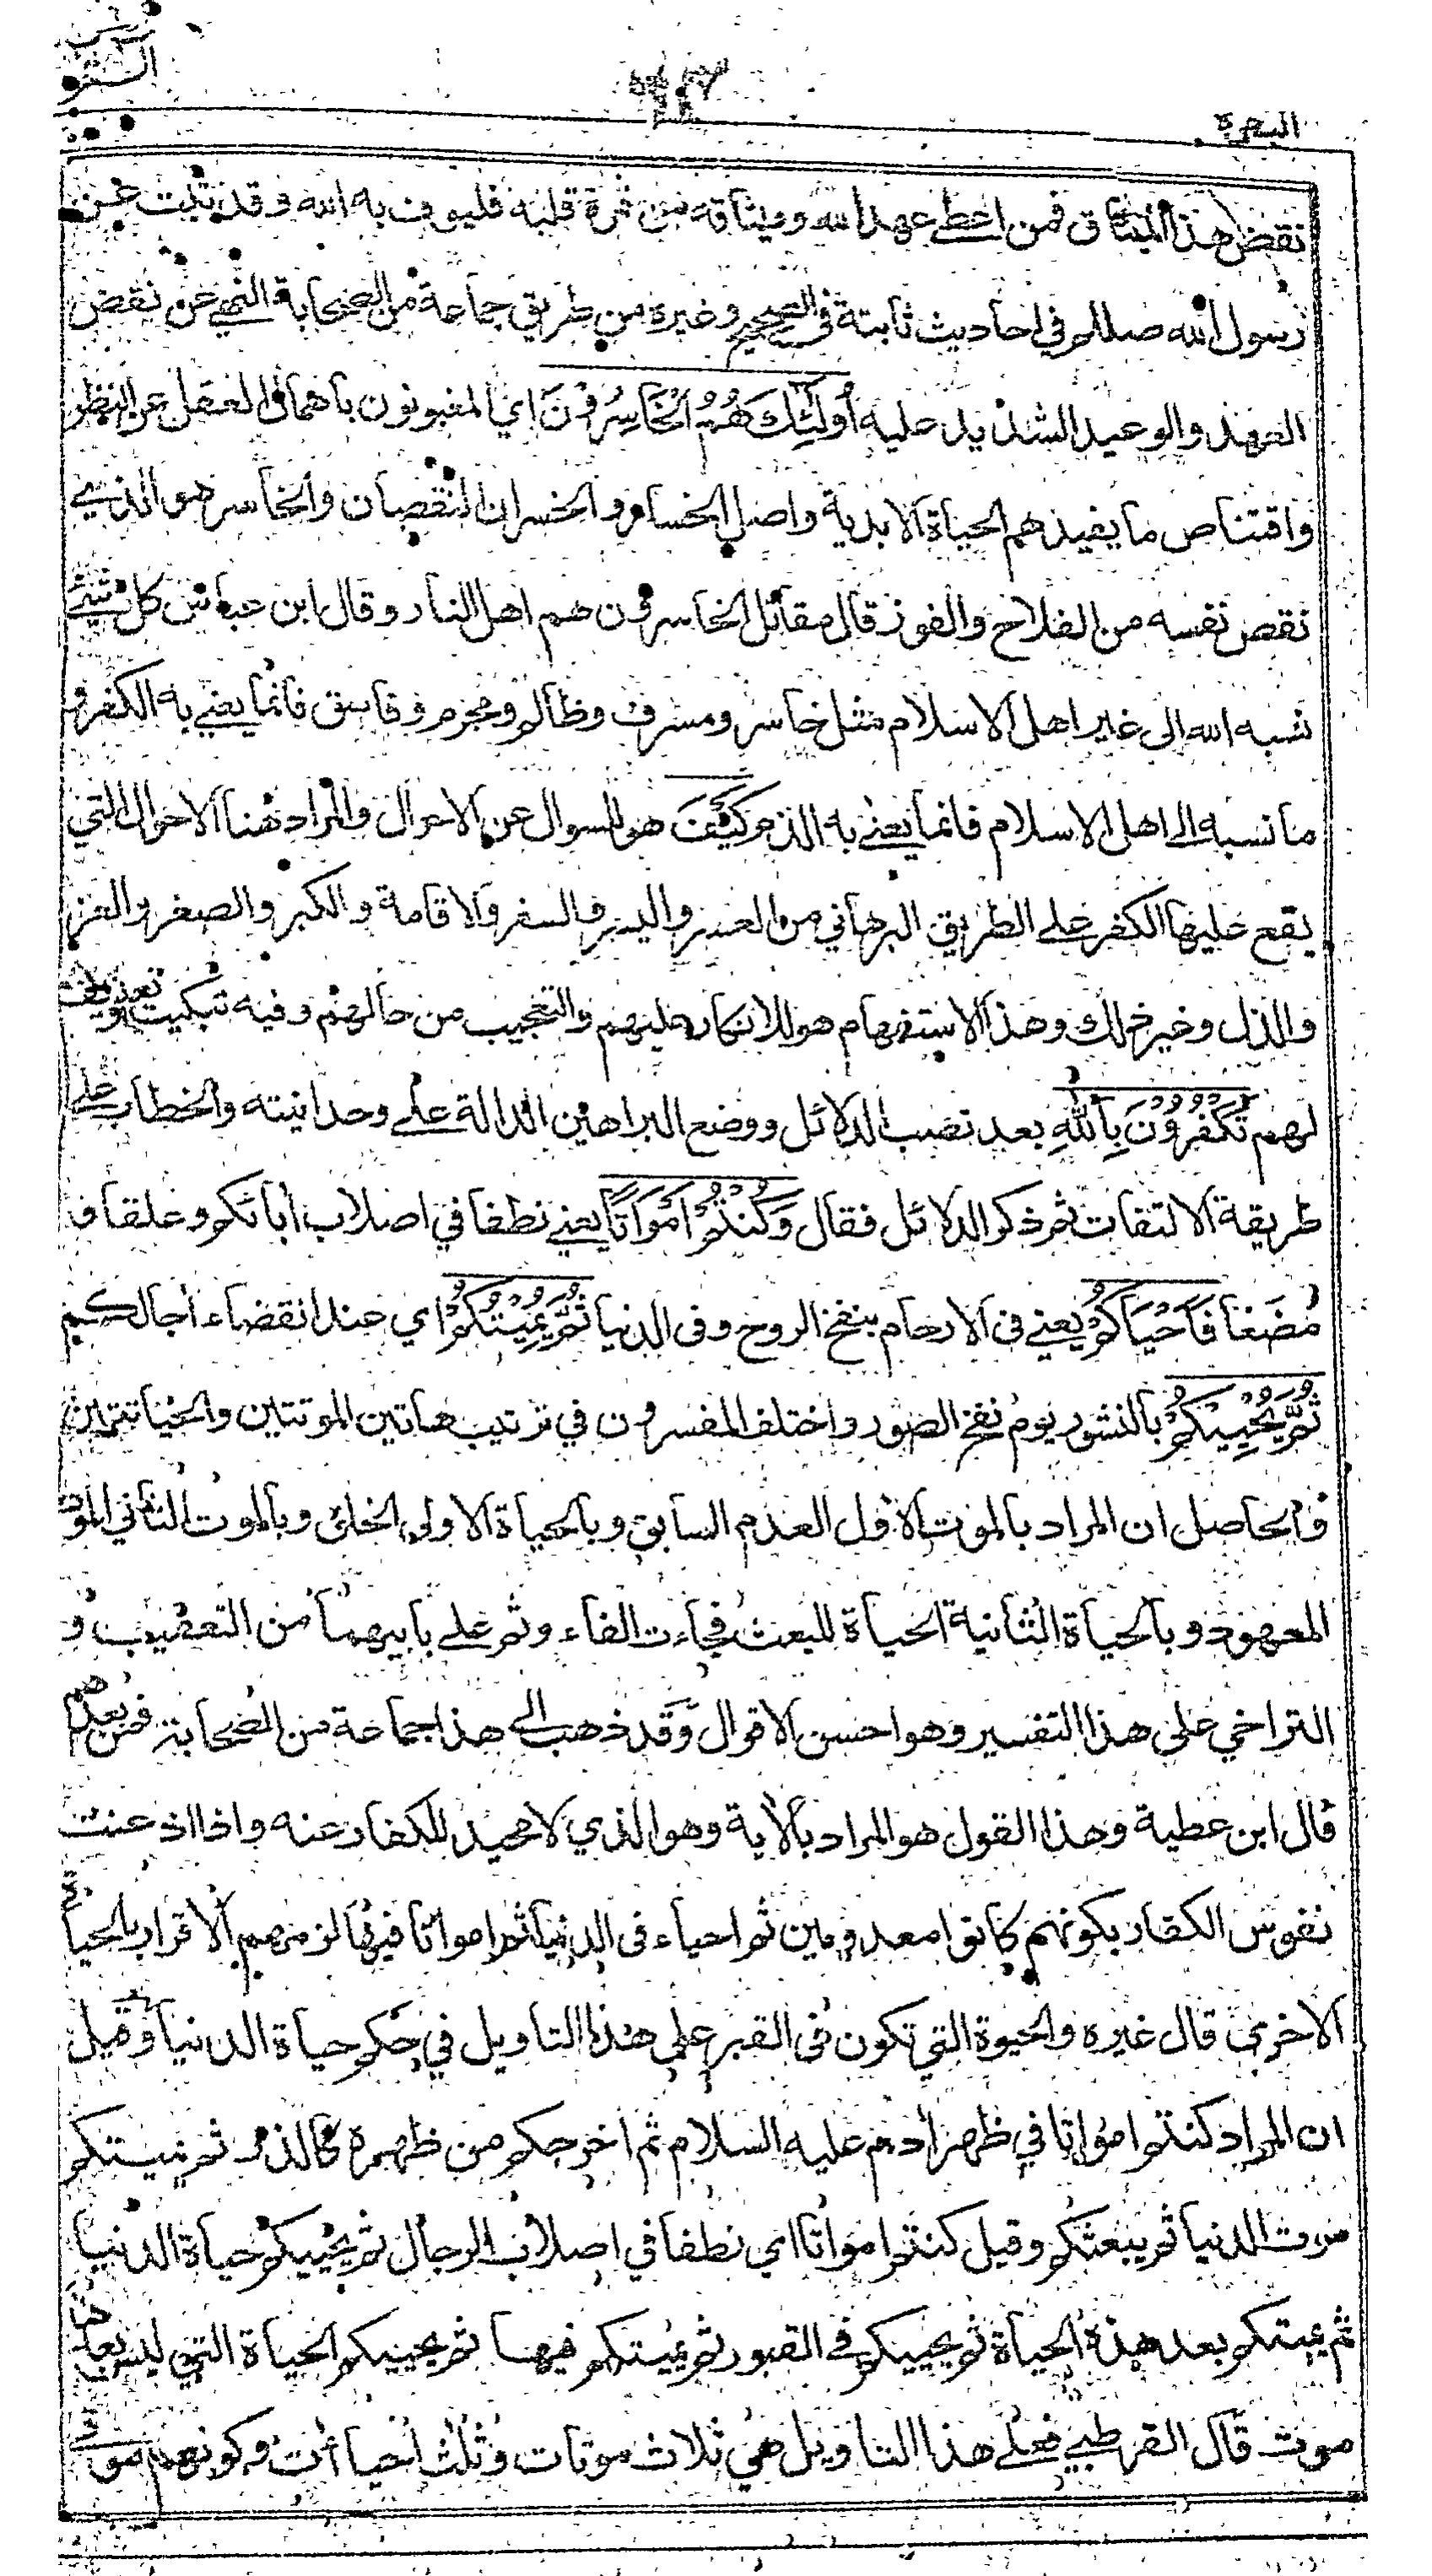 البقرة
نقض هذا الميثاق فمن اعطى عهد الله وميثاقه من ثمرة قلبه فليوف به الله وقد ثبت عن
رسول الله صللم في احاديث ثابتة في الصحيح وغيره من طريق جماعة من الصحابة النهي عن نقض
العهد والوعيد الشديد عليه أُولَٰئِكَ هُمُ الْخَاسِرُوْنَ اي المغبونون باهمال العقل عن النظر
واقتناص ما يفيدهم الحياة الابدية واصل الخسار والخسران النقصان والخاسر هو الذي
نقص نفسه من الفلاح والفوز قال مقاتل الخاسرون هم اهل النار وقال ابن عباس كل شيئ
نسبه الله الى غير اهل الاسلام مثل خاسر ومسرف وظالم ومجرم وفاسق فانما يعني به الكفر و
ما نسبه الى اهل الاسلام فانما يعني به الذم كَيْفَ هو للسوال عن الاحوال والمراد هنا الاحوال التي
يقع عليها الكفر على الطريق البرهاني من العسر واليسر والسفر والاقامة والكبر والصغر والعز
والذل وغير ذلك وهذا الاستفهام هو للانكار عليهم والتعجيب من حالهم وفيه تبكيت وتعنيف
لهم تَكْفُرُوْنَ بِاللّٰهِ بعد نصب الدلائل ووضع البراهين الدالة على وحدانيته والخطاب على
طريقة الالتفات ثم ذكر الدلائل فقال وَكُنْتُمْ اَمْوَاتًا يعني نطفا في اصلاب أبائكم وعلقا و
مُضَغا فَاَحْيَاكُمْ يعني في الارحام بنفخ الروح وفي الدنيا ثُمَّ يُمِيْتُكُمْ اي عند انقضاء أجالكم
ثُمَّ يُحْيِيْكُمْ بالنشور يوم نفخ الصور واختلف المفسرون في ترتيب هاتين الموتتين والحياتين
والحاصل ان المراد بالموت الاول العدم السابق وبالحياة الاولى الخلق وبالموت الثاني الموت
المعهود وبالحياة الثانية الحياة للبعث فجاءت الفاء وثم على بابيهما من التعقيب و
التراخي على هذا التفسير وهو احسن الاقوال وقد ذهب الى هذا جماعة من الصحابة فمن بعدهم
قال ابن عطية وهذا القول هو المراد بالأية وهو الذي لا محيد للكفار عنه واذا اذعنت
نفوس الكفار بكونهم كانوا معدومين ثم احياء في الدنيا ثم امواتا فيها لزمهم الاقرار بالحياة
الاخرى قال غيره والحيوة التي تكون في القبر على هذا التاويل في حكم حياة الدنيا وقيل
ان المراد كنتم امواتا في ظهر أدم عليه السلام ثم اخرجكم من ظهره كالذر ثم يميتكم
موت الدنيا ثم يبعثكم وقيل كنتم امواتا اي نطفا في اصلاب الرجال ثم يحييكم حياة الدنيا
ثم يميتكم بعد هذه الحياة ثم يحييكم في القبور ثم يميتكم فيها ثم يحييكم الحياة التي ليس بعدها
موت قال القرطبي فعلى هذا التاويل هي ثلاث موتات وثلث احياأت وكونهم